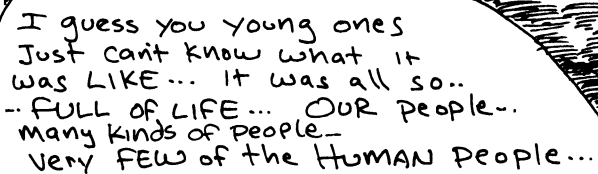 I guess you young ones
Just can't know what it
was LIKE... It was all so..
-. FULL OF LIFE... OUR people-.
many kinds of people_
very FEW of the HUMAN people...